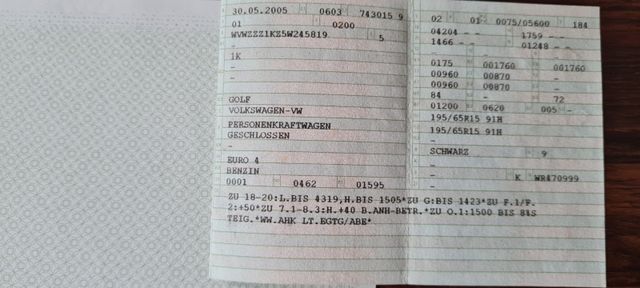 30.05.2005 0603 743015 9
01 0200
WVWZZZ1KZ5W245819 5
-
1K
-
-
GOLF
VOLKSWAGEN-VW
PERSONENKRAFTWAGEN
GESCHLOSSEN
-
EURO 4
BENZIN
0001 0462 01595
02 01 0075/05600 184
04204 - - 1759 - -
1466 - - 01248 - -
-
0175 001760 001760
00960 00870 -
00960 00870 -
84 - 72
01200 0620 005 -
195/65R15 91H
195/65R15 91H
-
SCHWARZ 9
-
- K WR470999
ZU 18-20:L.BIS 4319,H.BIS 1505*ZU G:BIS 1423*ZU F.1/F.
2:+50*ZU 7.1-8.3:H.+40 B.ANH-BETR.*ZU O.1:1500 BIS 8%S
TEIG.*WW.AHK LT.EGTG/ABE*